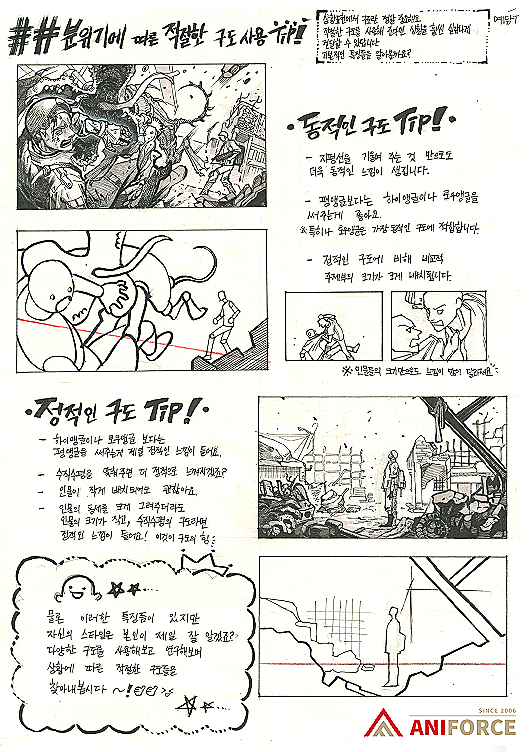 ## 분위기에 따른 적절한 구도 사용 TIP!
상황표현에서 구도만 정말 중요해요.
적절한 구도를 사용해 준다면 상황을 훨씬 실감나게
전달할 수 있답니다
기본적인 특징들을 알아볼까요?
·동적인 구도 TIP!·
- 지평선을 기울여 주는 것 만으로도
더욱 동적인 느낌이 생깁니다.
- 평앵글보다는 하이앵글이나 로우앵글을
써주는게 좋아요.
※특히나 로우앵글은 가장 동적인 구도에 적합합니다.
- 정적인 구도에 비해 비교적
주제부의 크기가 크게 배치됩니다.
※ 인물들의 크기만으로도 느낌이 많이 달라져요
·정적인 구도 TIP!·
- 하이앵글이나 로우앵글 보다는
평앵글을 써주는게 제일 정적인 느낌이 들어요.
- 수직수평을 맞춰주면 더 정적으로 느껴지겠죠?
- 인물이 작게 배치되어도 괜찮아요.
- 인물의 동세를 크게 그려주더라도
인물의 크기가 작고, 수직수평의 구도라면
정적인 느낌이 들어요! 이것이 구도의 힘
물론 이러한 특징들이 있지만
자신의 스타일은 본인이 제일 잘 알겠죠?
다양한 구도를 사용해보고 연구해보며
상황에 따른 적절한 구도들을
찾아내봅시다 ~!
SINCE 2006
ANIFORCE